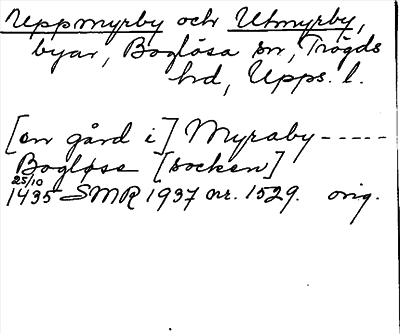 Uppmyrby och Utmyrby,
byar, Boglösa sn, Trögds
hd, Upps. l.
[en gård i] Myraby -----
Bogløsse [socken]
25/10
1435 SMR 1937 nr. 1529. orig.